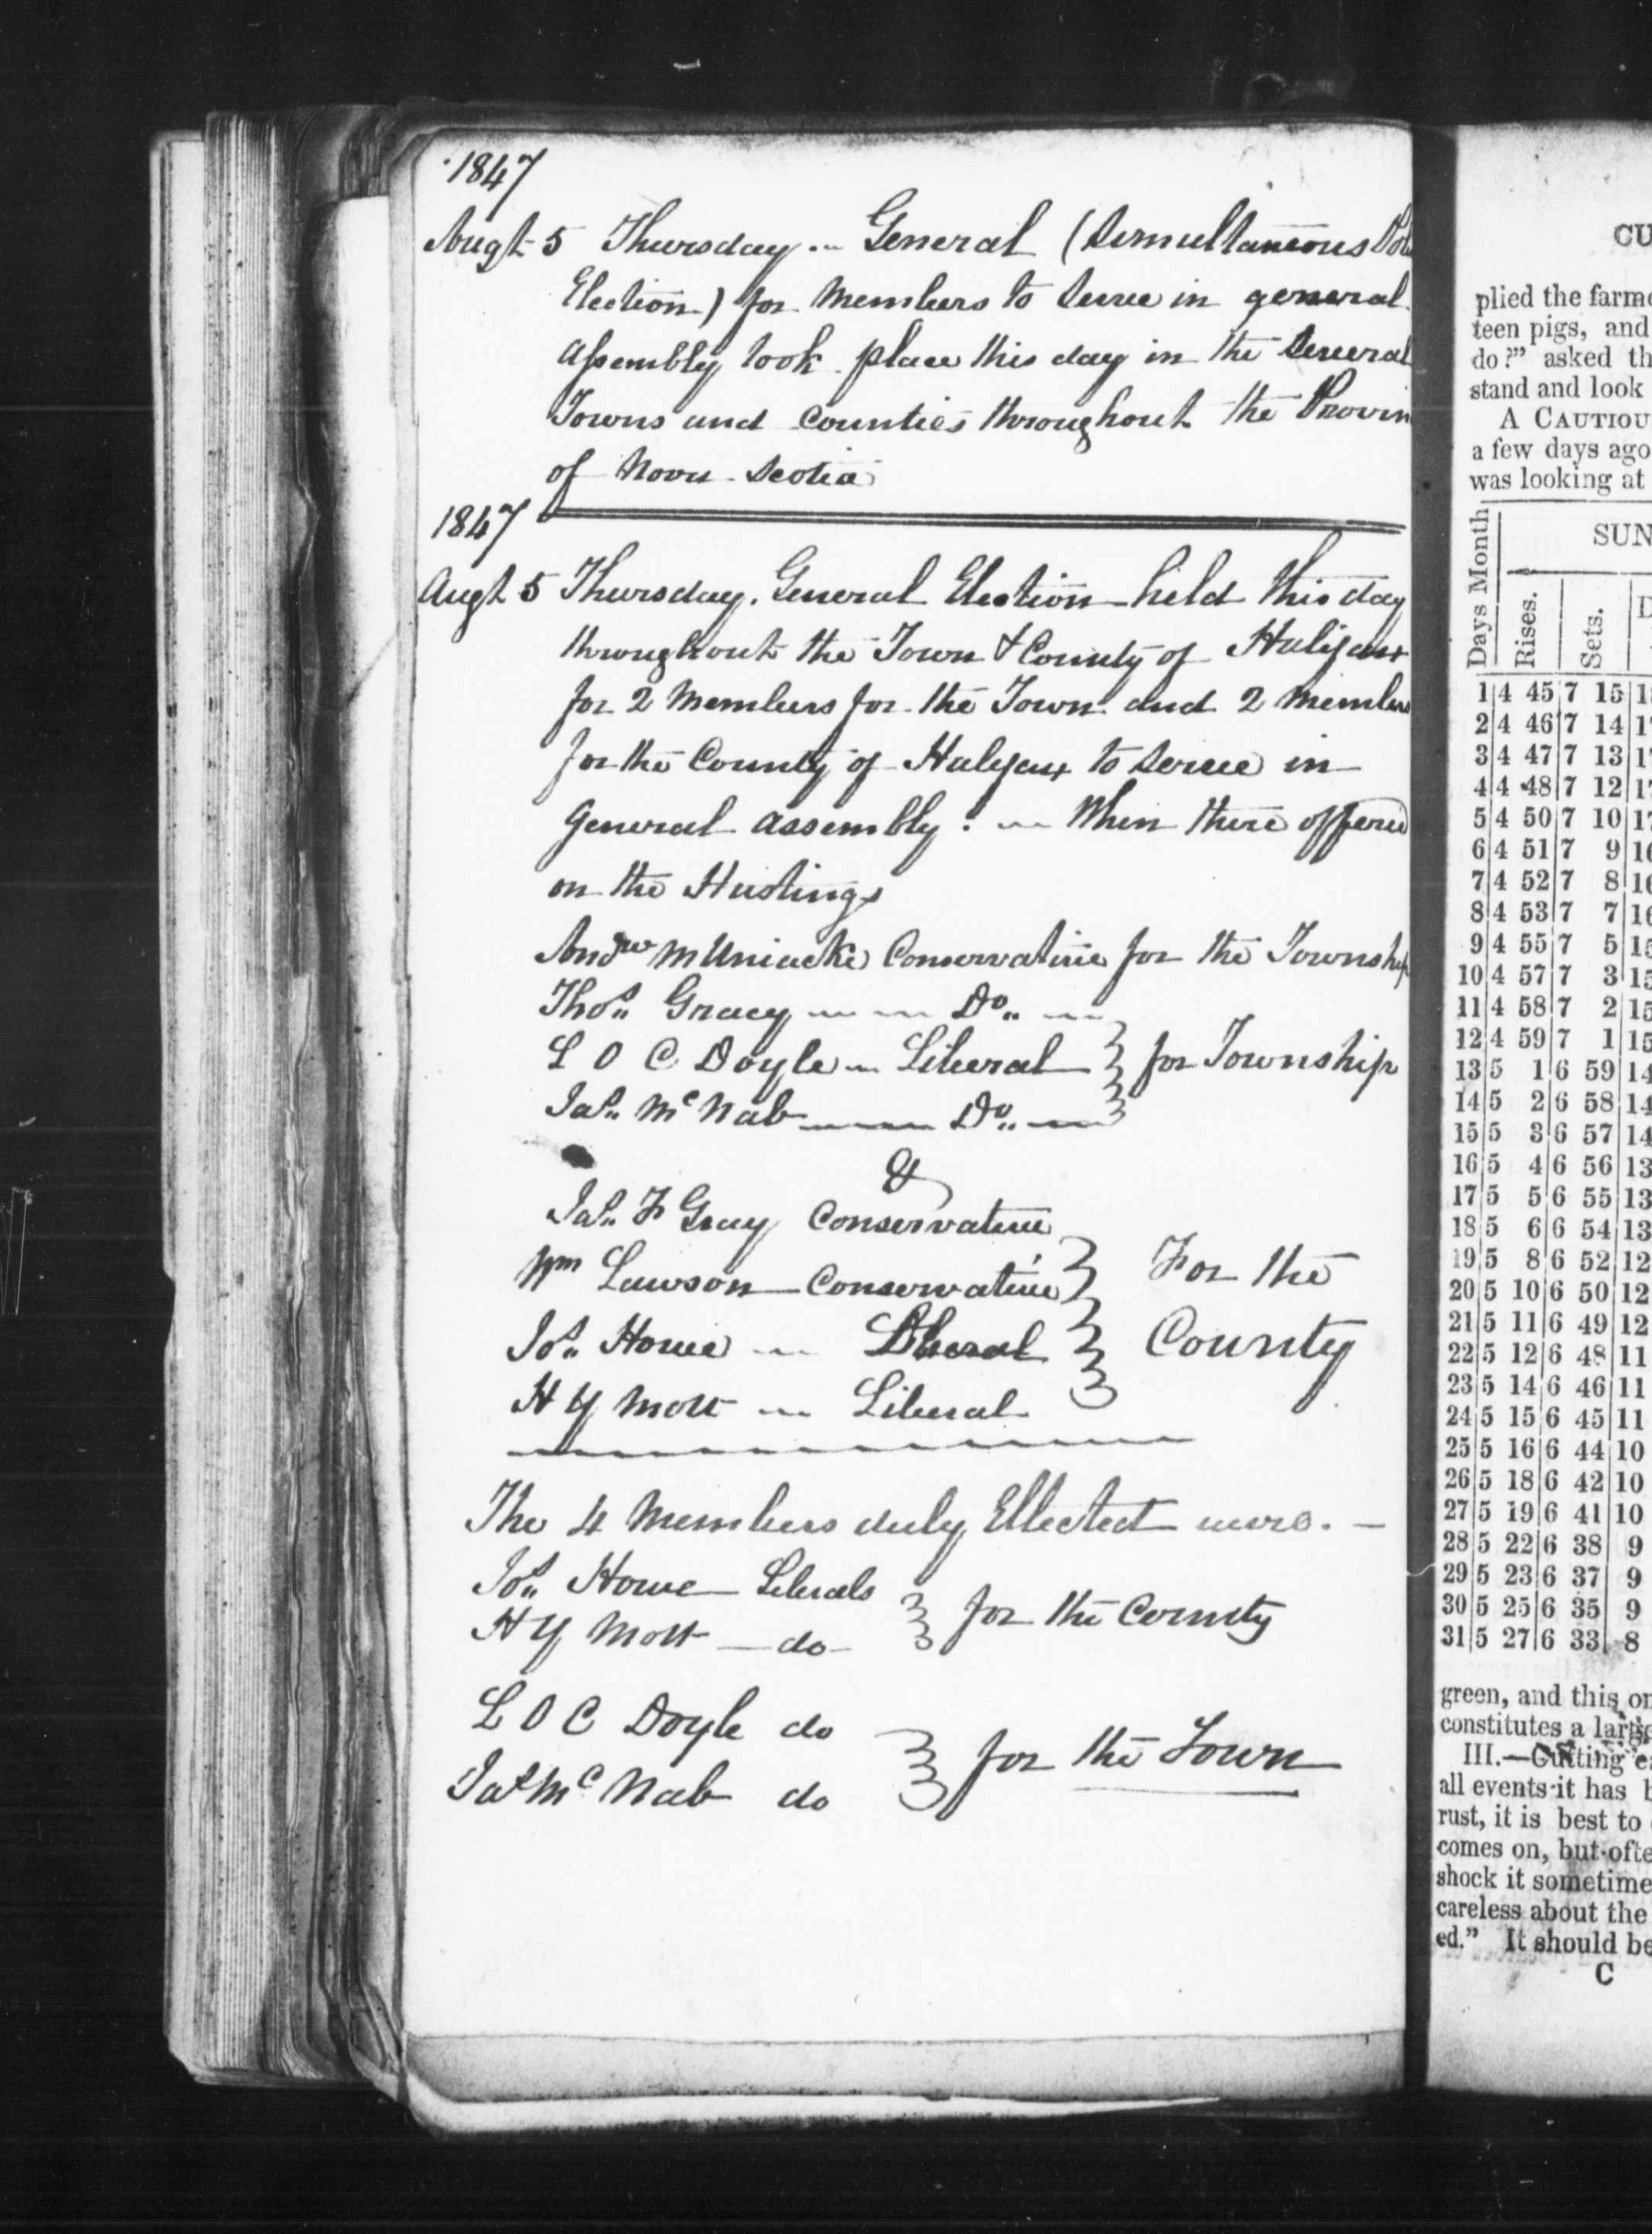 1847
Augt 5 Thursday .. General (Simultaneous
Election) for Members to Serve in general
Assembly took place this day in the Several
Towns and Counties throughout the Provin
of Nova Scotia
1847
Augt 5 Thursday. General Election held this day
throughout the Town & County of Halifax
for 2 Members for the Town and 2 Members
for the County of Halifax to Serve in
General Assembly : — When there offered
on the Hustings
Andw M Uniacke Conservative for the Township
Thos. Gracy — — Do. —
L O C Doyle — Liberal } for Township
Jas. Mc Nab — — Do. —
&
Jas. F Gray Conservative
Wm Lawson — Conservative } For the
Jos. Howe — Liberal } County
H Y Mott — Liberal
The 4 Members duly Ellected were. —
Jos. Howe — Liberals
H Y Mott — do — } for the County
L O C Doyle do
Jas Mc Nab do } for the Town
CU
plied the farme
teen pigs, and
do?" asked th
stand and look
A CAUTIOU
a few days ago
was looking at
Days Month
SUN
Rises.
Sets.
D
1 4 45 7 15 1
2 4 46 7 14 1
3 4 47 7 13 1
4 4 48 7 12 1
5 4 50 7 10 17
6 4 51 7 9 16
7 4 52 7 8 16
8 4 53 7 7 16
9 4 55 7 5 15
10 4 57 7 3 15
11 4 58 7 2 15
12 4 59 7 1 15
13 5 1 6 59 14
14 5 2 6 58 14
15 5 3 6 57 14
16 5 4 6 56 13
17 5 5 6 55 13
18 5 6 6 54 13
19 5 8 6 52 12
20 5 10 6 50 12
21 5 11 6 49 12
22 5 12 6 48 11
23 5 14 6 46 11
24 5 15 6 45 11
25 5 16 6 44 10
26 5 18 6 42 10
27 5 19 6 41 10
28 5 22 6 38 9
29 5 23 6 37 9
30 5 25 6 35 9
31 5 27 6 33 8
green, and this on
constitutes a large
III.—Cutting e
all events it has b
rust, it is best to
comes on, but ofte
shock it sometime
careless about the
ed." It should be
C